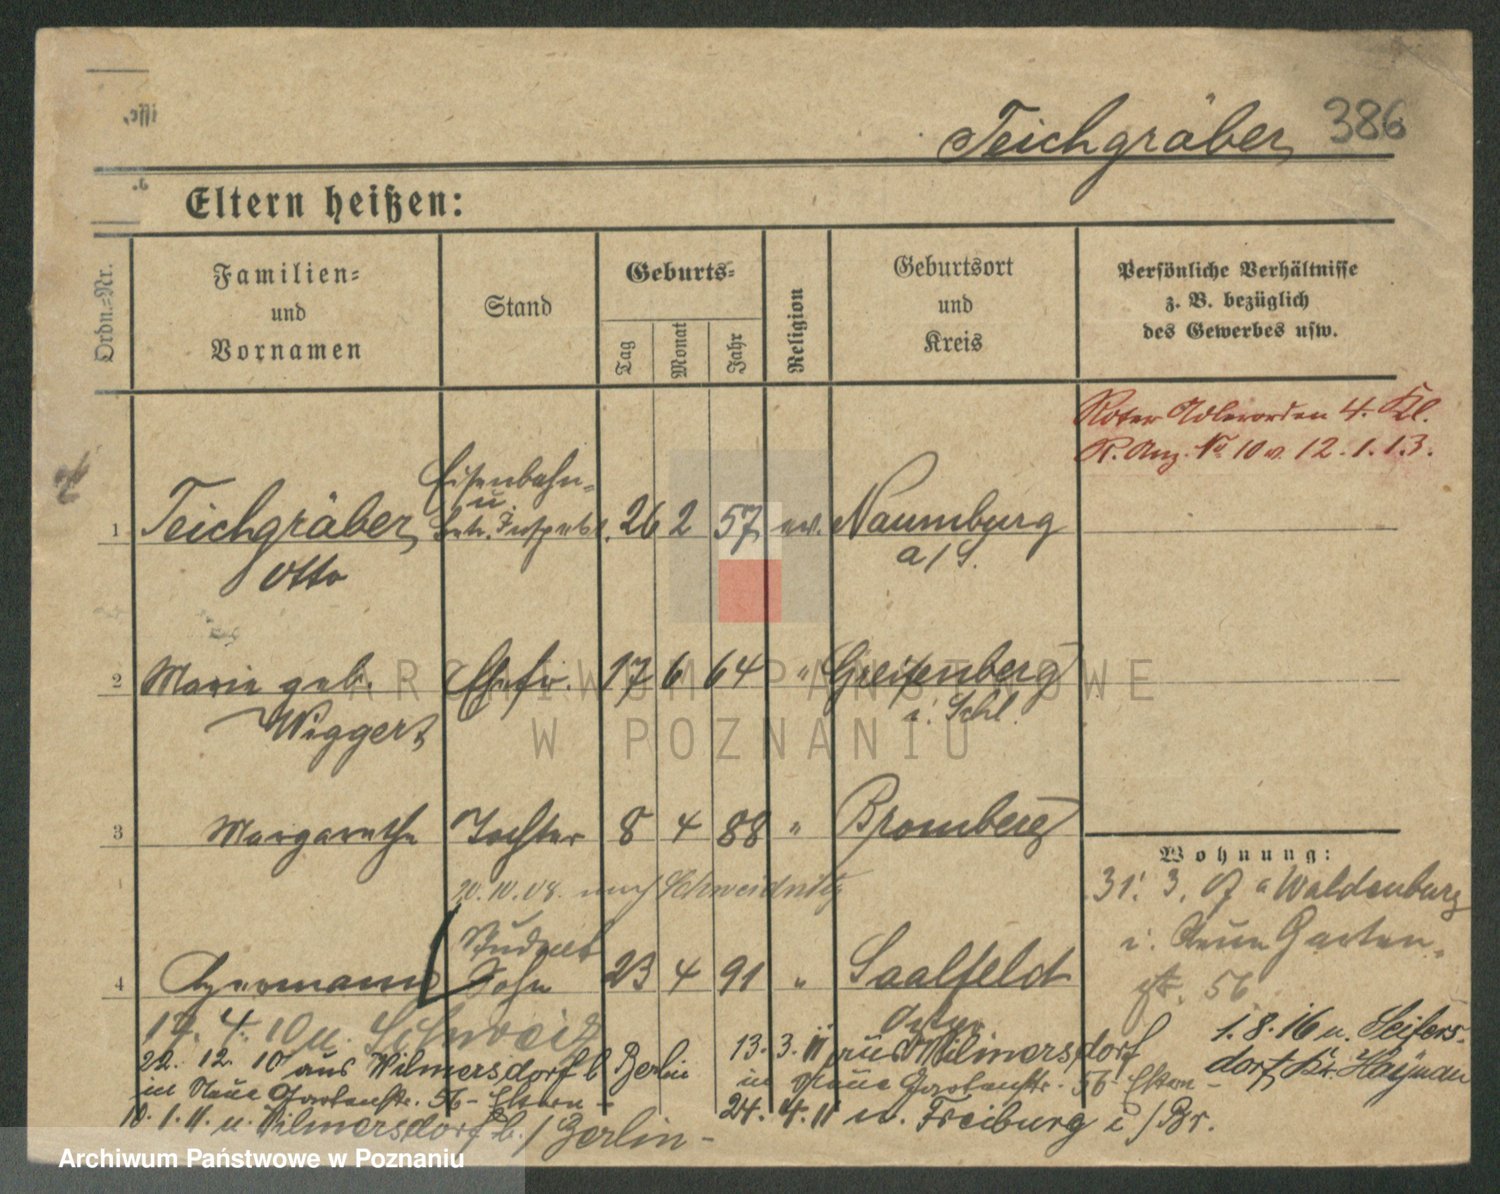 Teichgräber, 386
Eltern heißen:
Ordn.-Nr.
Familien-
und
Vornamen
Stand
Geburts-
Tag
Monat
Jahr
Religion
Geburtsort
und
Kreis
Persönliche Verhältnisse
z. B. bezüglich
des Gewerbes usw.
Roter Adlerorden 4. Kl.
R. Anz. No 10 v. 12.1.13.
Eisenbahn-
u.
1 Teichgräber, Betr. Inspekt. 26 2 57 ev. Naumburg
Otto a/S.
2 Marie geb. Ehefr. 17 6 64 " Greifenberg
Wiggert i. Schl.
3 Margarethe Tochter 8 4 88 " Bromberg
20.10.08. nach Schweidnitz
Wohnung:
31. 3. 07 n Waldenburg
i. Neue Garten-
str. 56
Student
4 Hermann Sohn 23 4 91 " Saalfeld
Ostpr.
17. 4. 10 n. Schweiz
22. 12. 10 aus Wilmersdorf b Berlin
in Neue Gartenstr. 56 - Eltern -
10. 1. 11. n. Wilmersdorf b./Berlin -
13. 3. 11 aus Wilmersdorf
in Neue Gartenstr. 56 Eltern -
24. 4. 11 n. Freiburg i/Br.
1. 8. 16 n. Seifers-
dorf, Kr. Haynau
ARCHIWUM PAŃSTWOWE
W POZNANIU
Archiwum Państwowe w Poznaniu